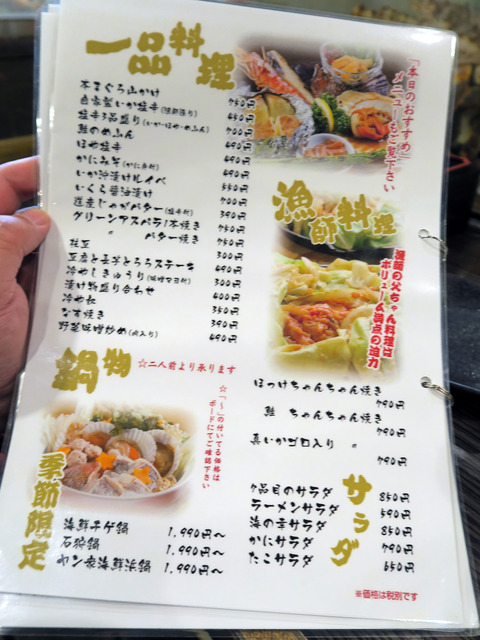 一品料理
本まぐろ山かけ 750円
自家製いか塩辛(朗部張り) 450円
塩辛3品盛り(いか・ほや・めふん) 700円
鮭のめふん 490円
ほや塩辛 490円
かにみそ(かに身附) 490円
いか沖漬けルイベ 550円
いくら醤油漬け 700円
道産じゃがバター(塩辛附) 390円
グリーンアスパラ1本焼き 750円
〃 バター焼き 750円
枝豆 300円
豆腐と長芋とろろステーキ 490円
冷やしきゅうり(味噌マヨ附) 300円
漬け物盛り合わせ 400円
冷やっこ 350円
なす焼き 390円
野菜味噌炒め(肉入り) 490円
「本日のおすすめ」
メニューもご覧下さい
漁師料理
漁師の父ちゃん料理は
ボリューム満点の迫力
ほっけちゃんちゃん焼き
790円
鮭 ちゃんちゃん焼き
790円
真いかゴロ入り 〃
790円
鍋物
☆二人前より承ります
☆「〜」の付いてる価格は
ボードにてご確認下さい
季節限定
海鮮チゲ鍋 1.990円〜
石狩鍋 1.990円〜
ヤン衆海鮮浜鍋 1.990円〜
サラダ
7品目のサラダ 850円
ラーメンサラダ 590円
海の幸サラダ 850円
かにサラダ 790円
たこサラダ 650円
※価格は税別です